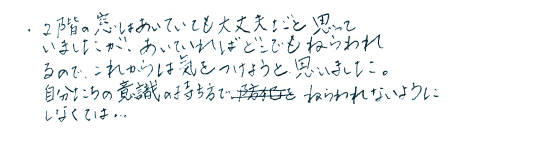 ・2階の窓はあいていても大丈夫だと思って
いましたが、あいていればどこでもねらわれ
るので、これからは気をつけようと思いました。
自分たちの意識の持ち方で ねらわれないように
しなくては…